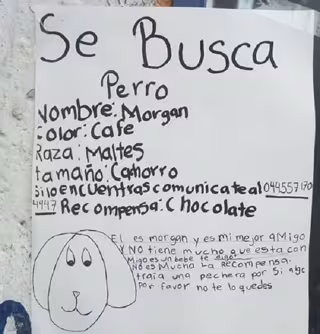 Se Busca
Perro
Nombre: Morgan
Color: Cafe
Raza: Maltes
tamaño: Cachorro
Si lo encuentras comunicate al 094557170
4947 Recompensa: Chocolate
El es morgan y es mi mejor amigo
y NO tiene mucho que esta con
migo es un bebe te
NO es Mucha La Recompensa.
traia una pechera por si algo
por favor no te lo quedes